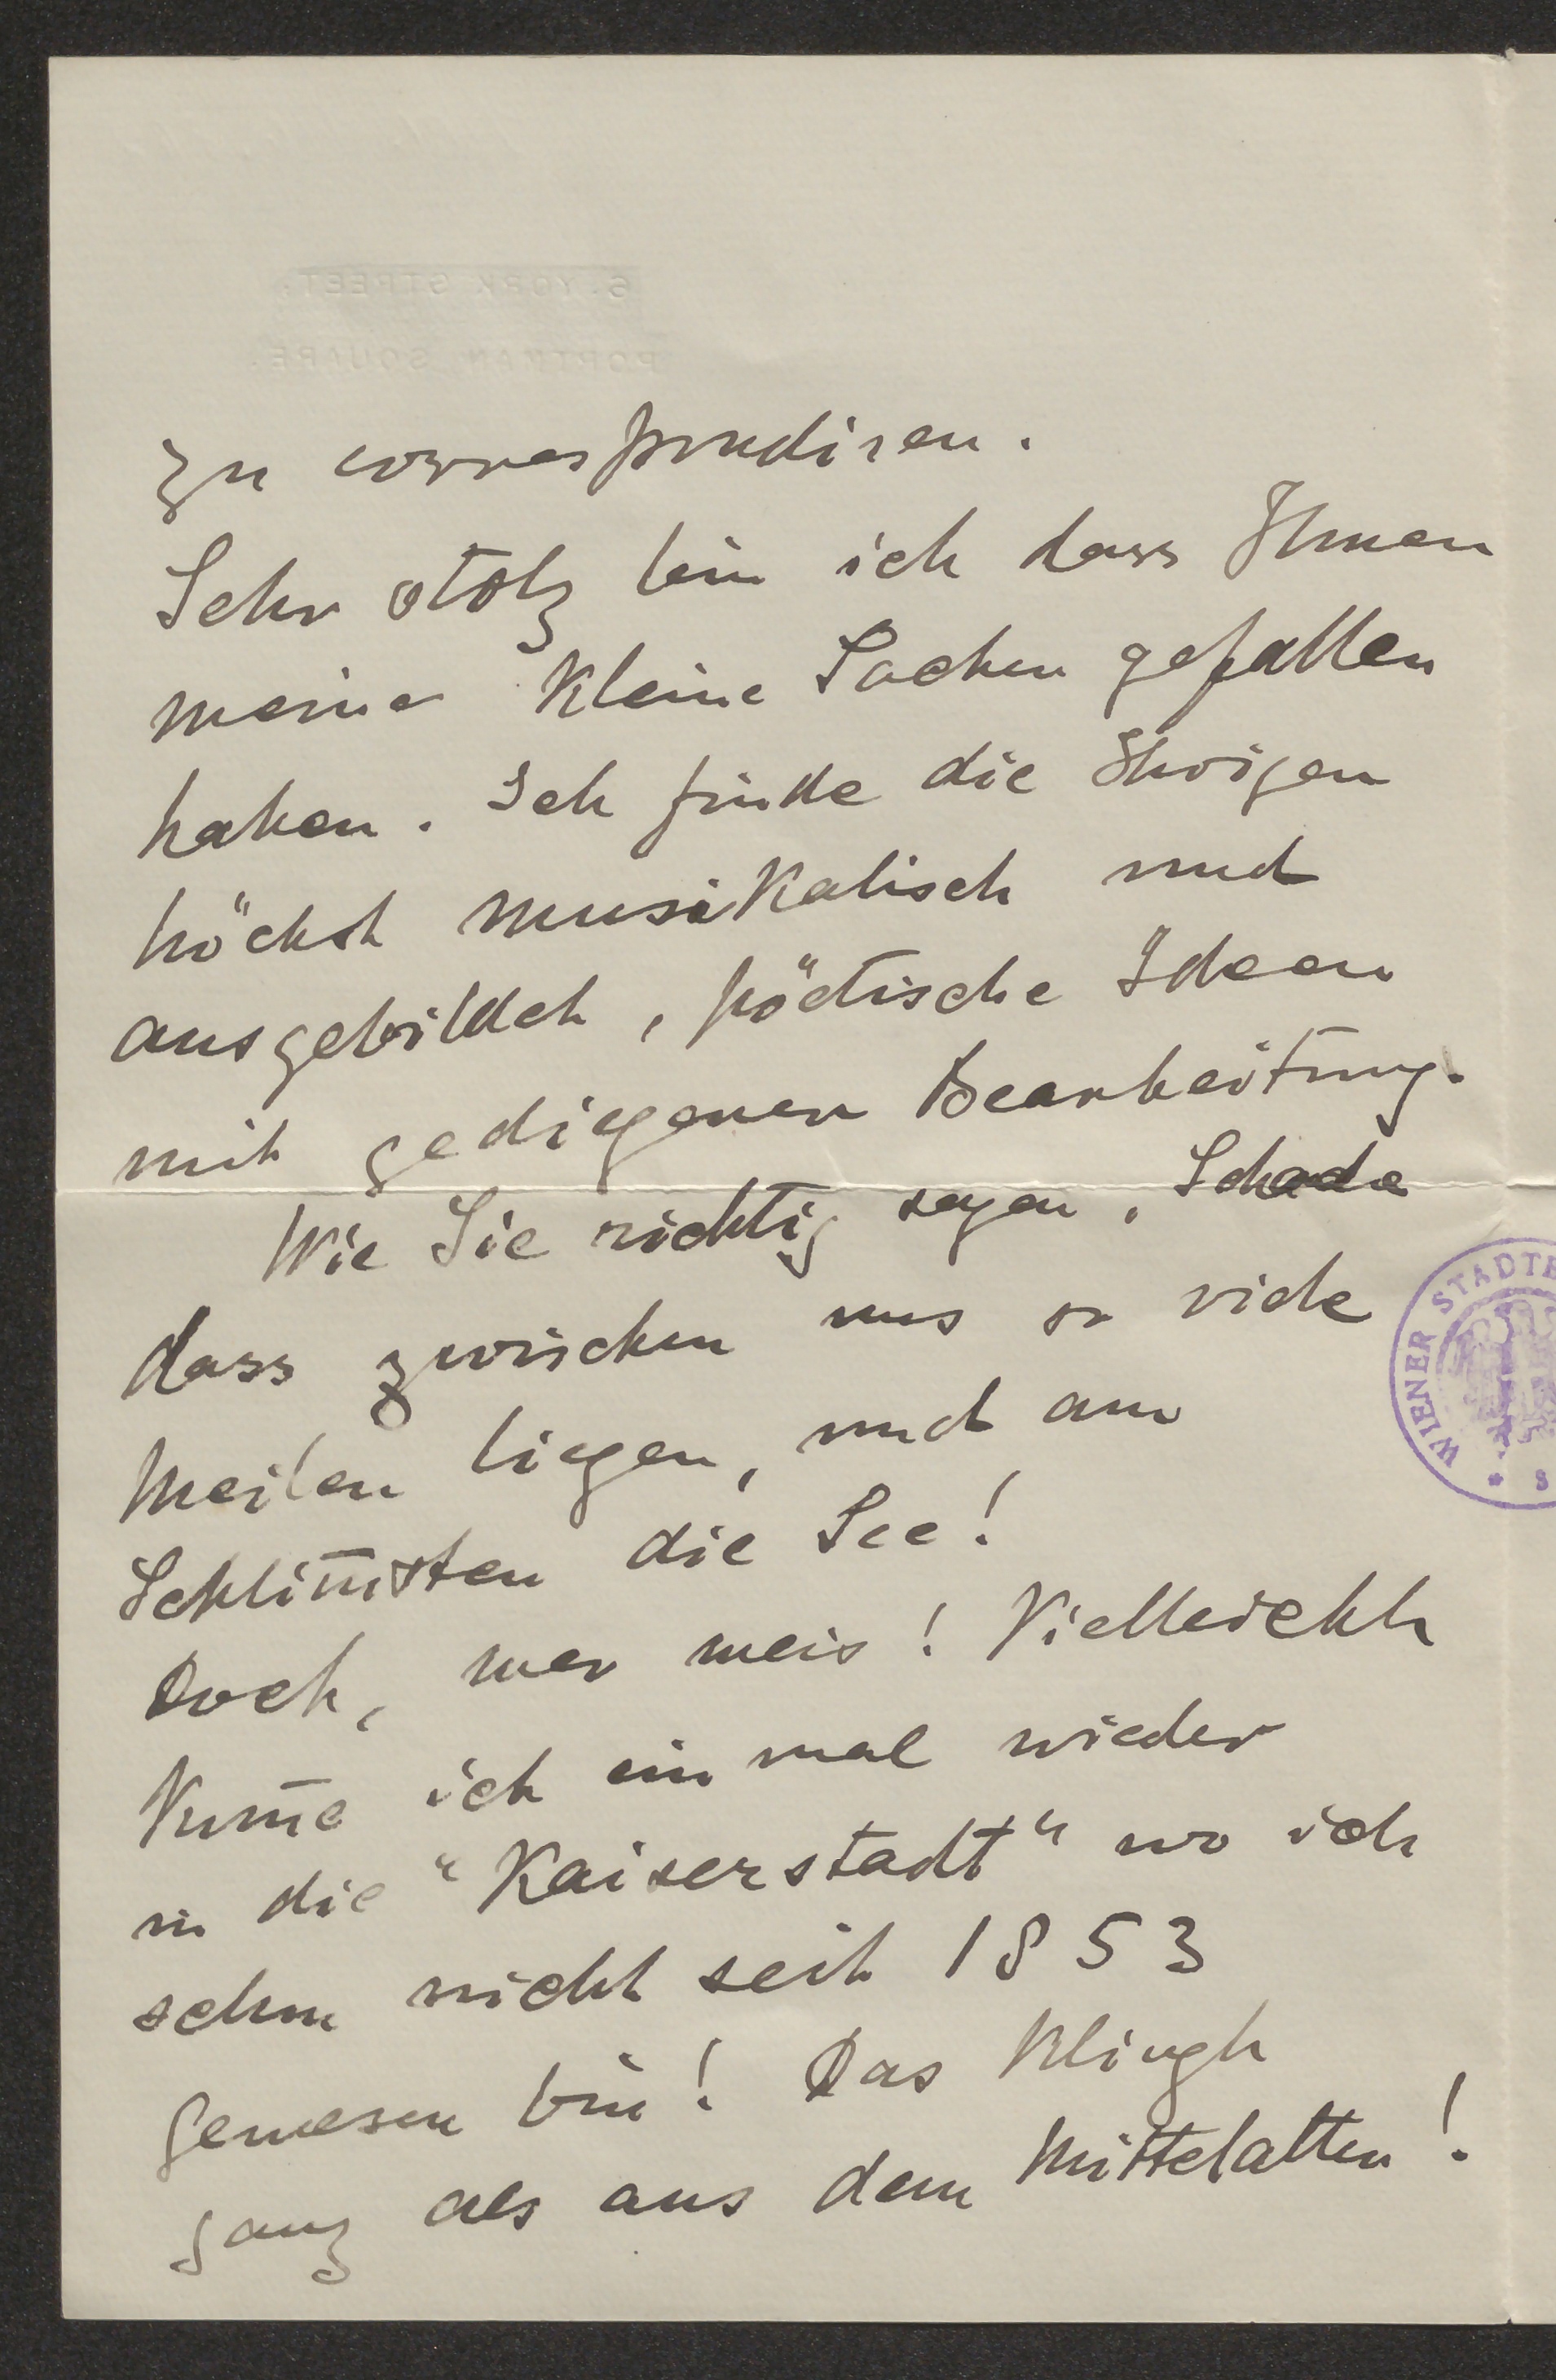 6. YORK STREET.
PORTMAN SQUARE.
zu correspondiren.
Sehr stolz bin ich dass Ihnen
meine kleine Sachen gefallen
haben. Ich finde die Ihrigen
höchst musikalisch und
ausgebildet, pöetische Ideen
mit gediegener Bearbeitung.
Wie Sie richtig sagen, Schade
dass zwischen uns so viele
Meilen liegen, und am
Schlim̅sten die See!
Doch, wer weis! Vielleicht
kom̅e ich ein mal wieder
in die "Kaiserstadt" wo ich
schon nicht seit 1853
gewesen bin! Das klingt
ganz als aus dem Mittelalter!
WIENER STADTB